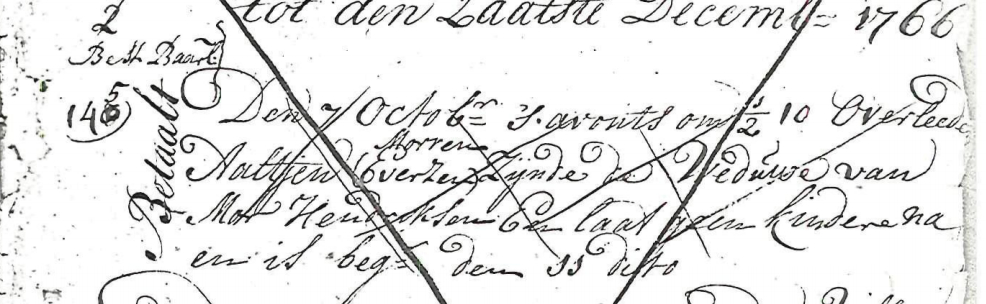 tot den Laatste Decemb= 1766
2
Best. Baarl
145
Betaalt
Den 7 Octobr= s. avonts om ½ 10 Overleede
Morren
Aaltjen Everzen Zijnde de Weduwe van
Mor Hendriksen En laat geen kindere na
en is beg= den 11 dito